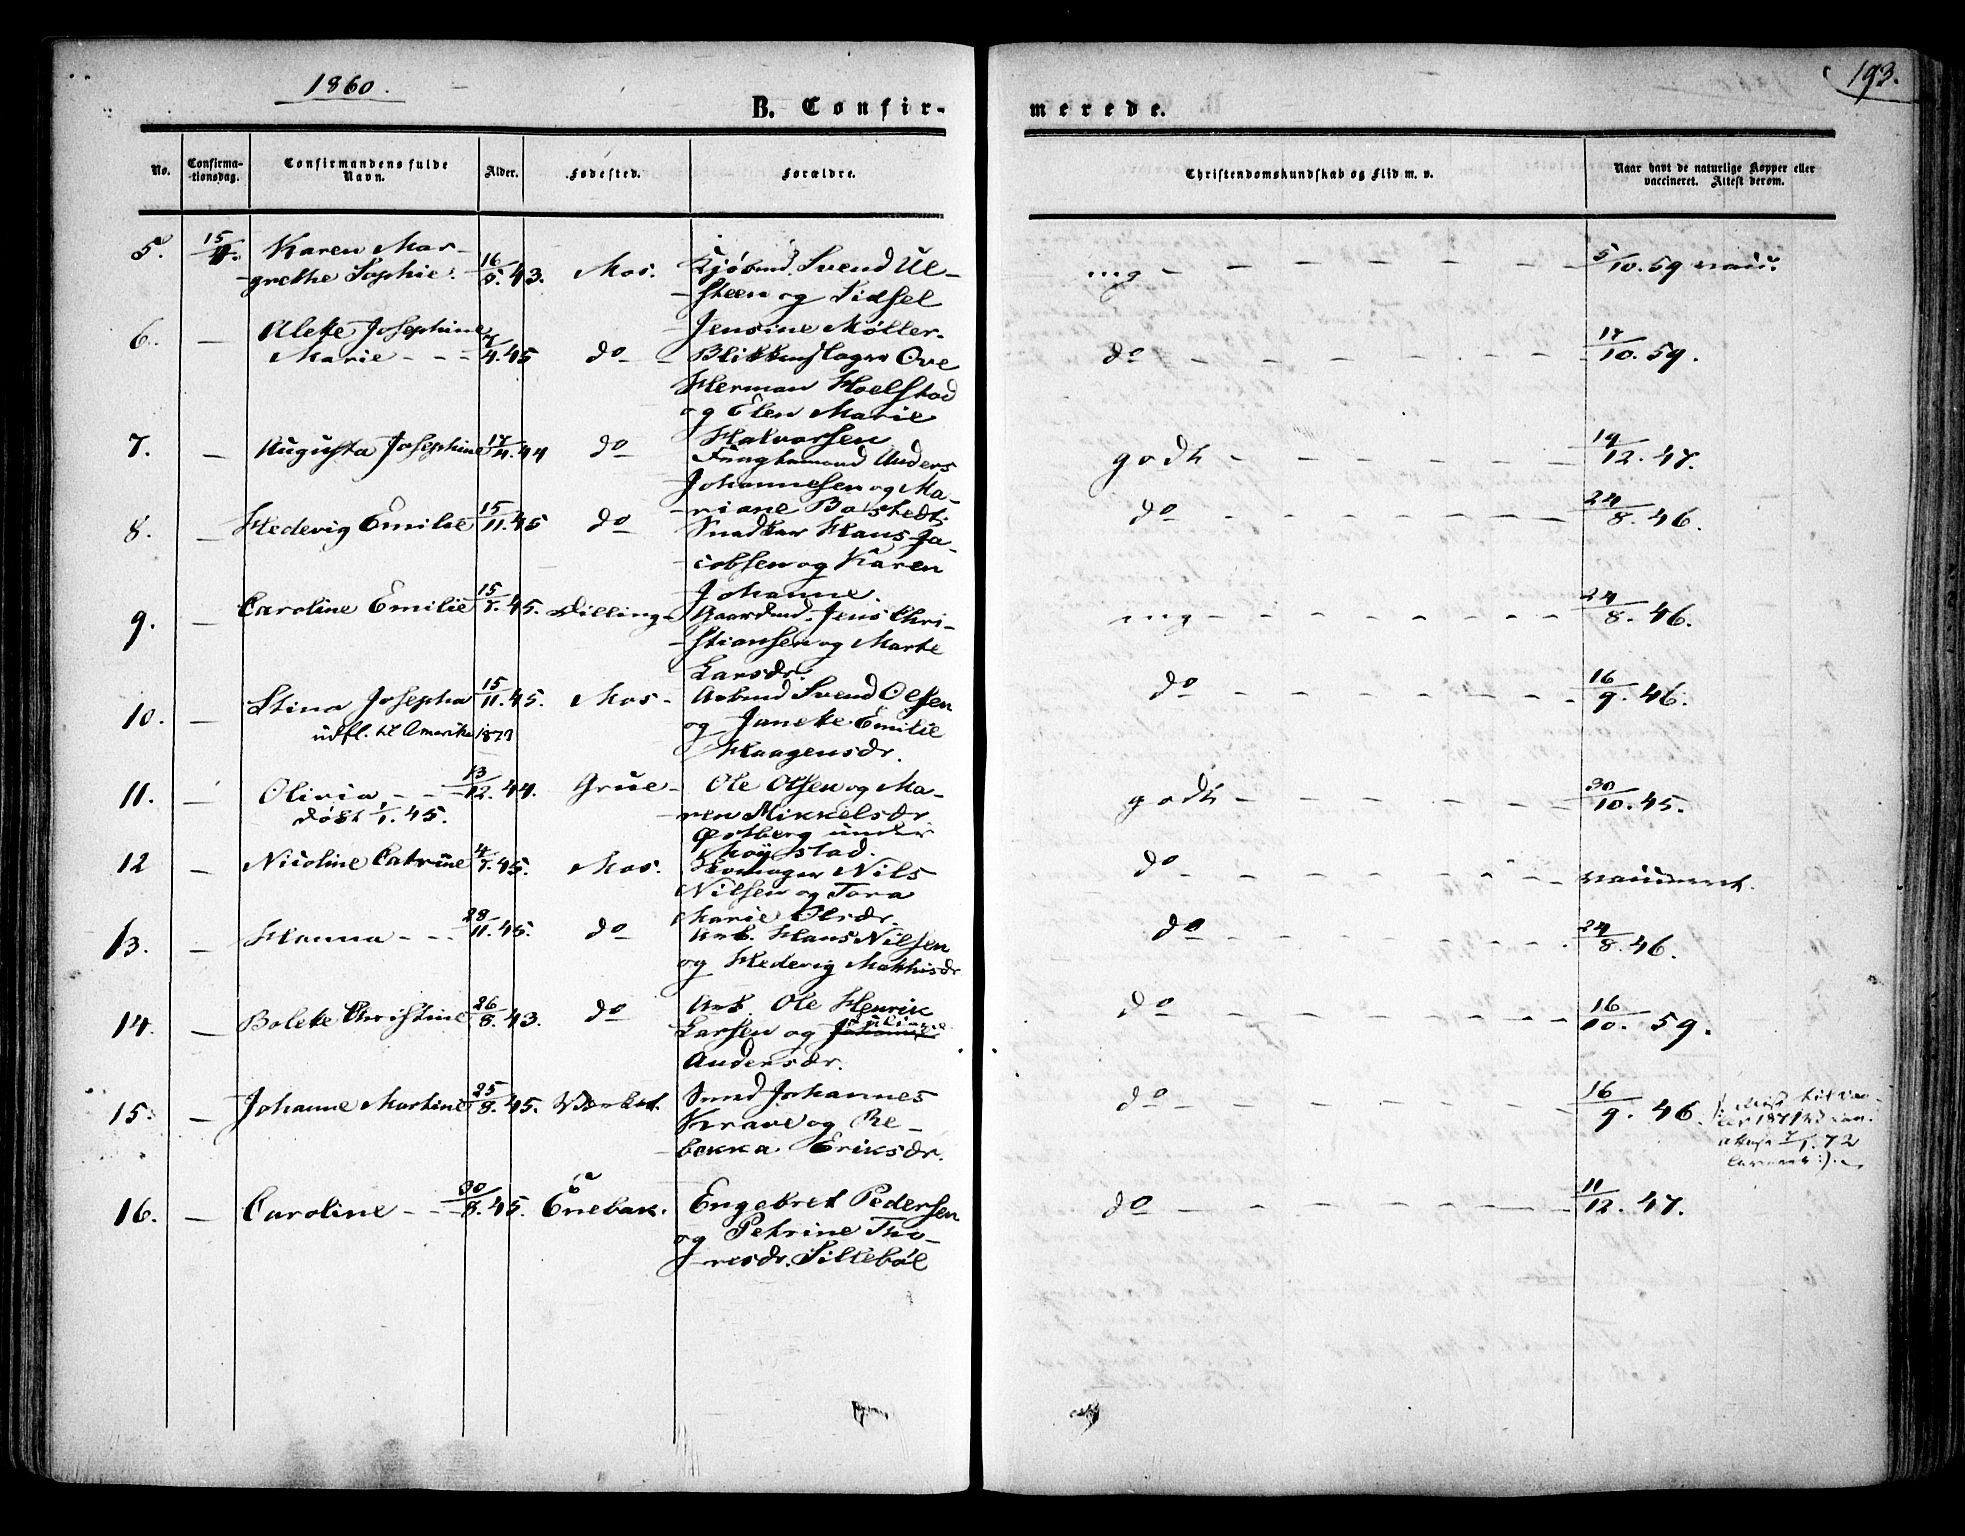 1860.
193.
B. Confir-
merede.
No.
Confirma-
tionsdag.
Confirmandens fulde
Navn.
Alder.
Fødested.
Forældre.
Christendomskundskab og Flid m. v.
Naar havt de naturlige Kopper eller
vaccineret. Attest derom.
5. 15/4. Karen Mar- 16/5.43. Mos. Kjøbmd. Svend Ul- mg - 5/10.59 vacc.
grethe Sophie. steen og Sidsel
Jensine Møller.
6. - Alette Josephine 7/4.45 do Blikkenslager Ove do 17/10.59.
Marie - - - Herman Hoelstad
og Elen Marie
Halvorsen
7. - Augusta Josephine 17/4.44 do Anders godt - 19/12.47.
Johannesen og Ma-
riane Bolstedt.
8. - Hedevig Emilie 15/11.45 do Snedker Hans Ja- do - 24/8.46.
cobsen og Karen
Johanne.
9. - Caroline Emilie 15/7.45. Dilling- Gaardmd. Jens Chri- mg - 24/8.46.
stiansen og Marte
Larsdr.
10. - Stina Josepha 15/11.45. Mos- Arbmd Svend Olsen do - 16/9.46.
udfl. til Amerika og Janeke Emilie
Haagensdr.
11. - Olivia - - - 13/12.44. Grue- Ole Olsen og Ma- godt - 30/10.45.
døbt 1/1.45. ren Mikkelsdr
Østberg under
12 - Nicoline Catrine 4/7.45. Mos. Nils do - vaccineret.
Nilsen og Tora
Marie Olsdr.
13. - Hanna - - - 28/11.45. do Arb. Hans Nilsen do - 24/8.46.
og Hedevig Mathisdr
14. - Bolette Christine 26/8.43. do Arb. Ole Henrik do - 16/10.59.
Larsen og
Andersdr.
15. - Johanne Martine 25/8.45. Værket. Smed Johannes do - 16/9.46.
Krave og Re-
bekka Eriksdr.
16. - Caroline - - 30/8.45. Enebak. Engebret Pedersen do - 11/12.47.
og Petrine Tho-
resdr. Sillebøl